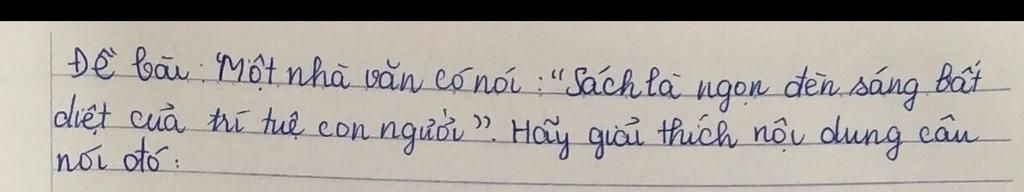 Đề bài: "Một nhà văn có nói: "Sách là ngọn đèn sáng bất
diệt của trí tuệ con người". Hãy giải thích nội dung câu
nói đó: